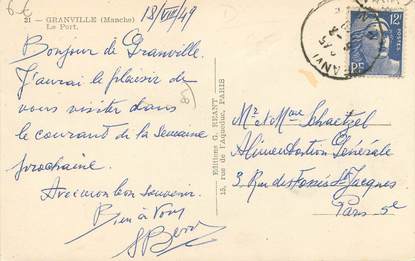 6€
21 - GRANVILLE (Manche)
Le Port.
18/VIII/49
Bonjour de Granville.
J'aurai le plaisir de
vous visiter dans
le courant de la semaine
prochaine.
Avec mon bon souvenir.
Bien à Vous
Editions G. RÉANT
15, rue de l'Aqueduc, PARIS
12F
POSTES
RF
Mr et Mme Schaetzel
Alimentation Générale
3 Rue des Fossés St Jacques
Paris 5e